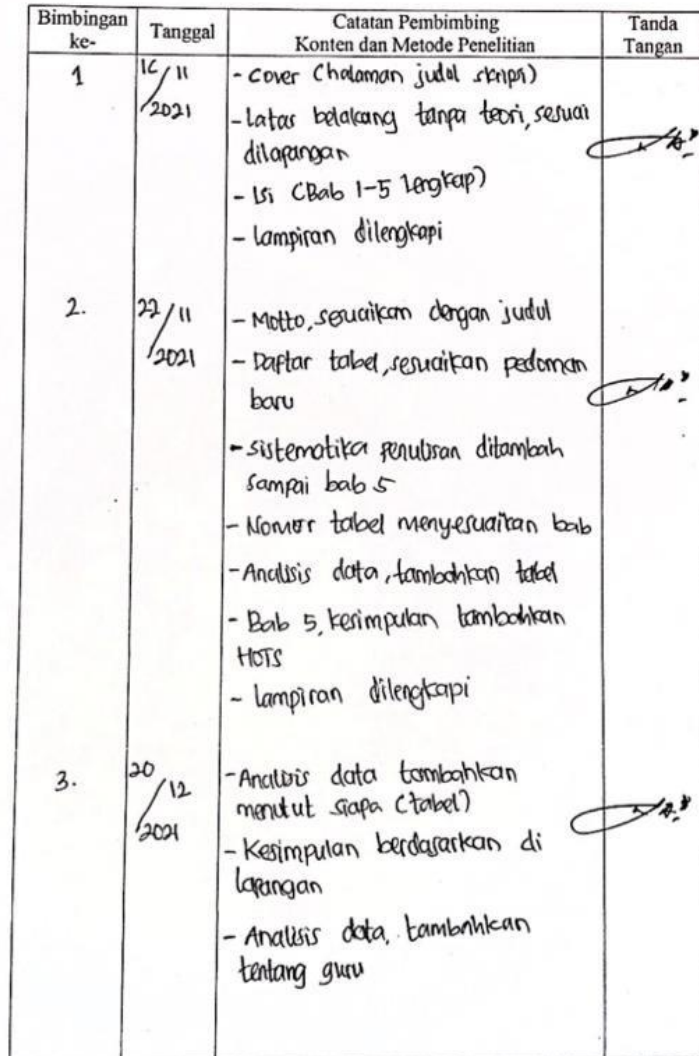 Bimbingan ke- Tanggal Catatan Pembimbing Konten dan Metode Penelitian Tanda Tangan
1 16/11/2021 - Cover (halaman judul skripsi)
- latar belakang tanpa teori, sesuai
dilapangan
- Isi (Bab 1-5 lengkap)
- lampiran dilengkapi
2. 22/11/2021 - Motto, sesuaikan dengan judul
- Daftar tabel, sesuaikan pedoman
baru
- sistematika penulisan ditambah
sampai bab 5
- Nomor tabel menyesuaikan bab
- Analisis data, tambahkan tabel
- Bab 5, kesimpulan tambahkan
HOTS
- lampiran dilengkapi
3. 20/12/2021 - Analisis data tambahkan
menurut siapa (tabel)
- Kesimpulan berdasarkan di
lapangan
- Analisis data, tambahkan
tentang guru